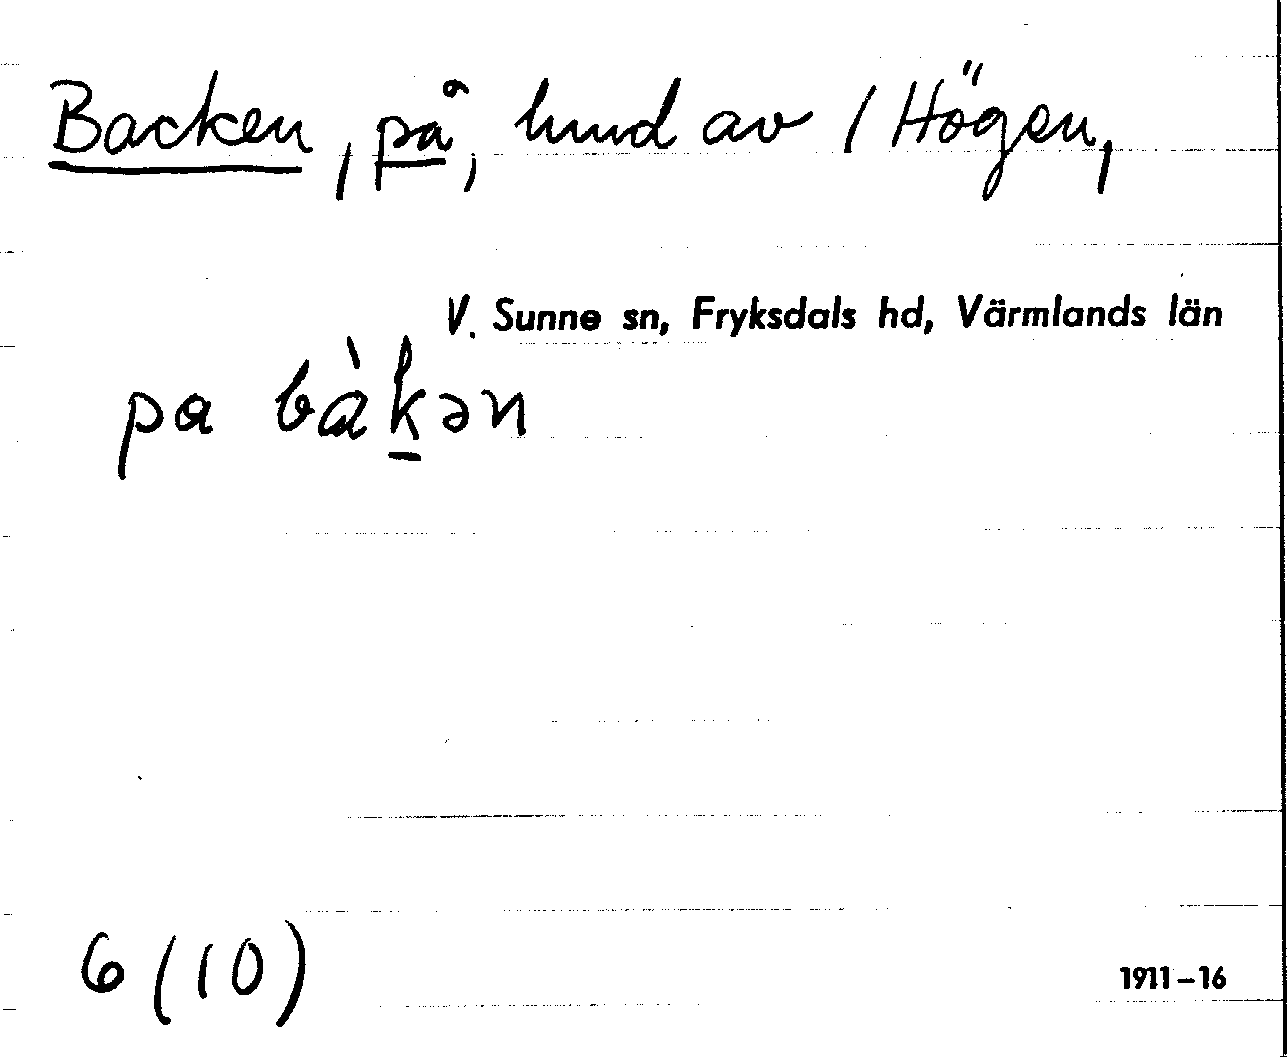 Backen, på, hmd av 1 Högen,
V. Sunne sn, Fryksdals hd, Värmlands län
pa bàk̲ən
6 (10)
1911-16